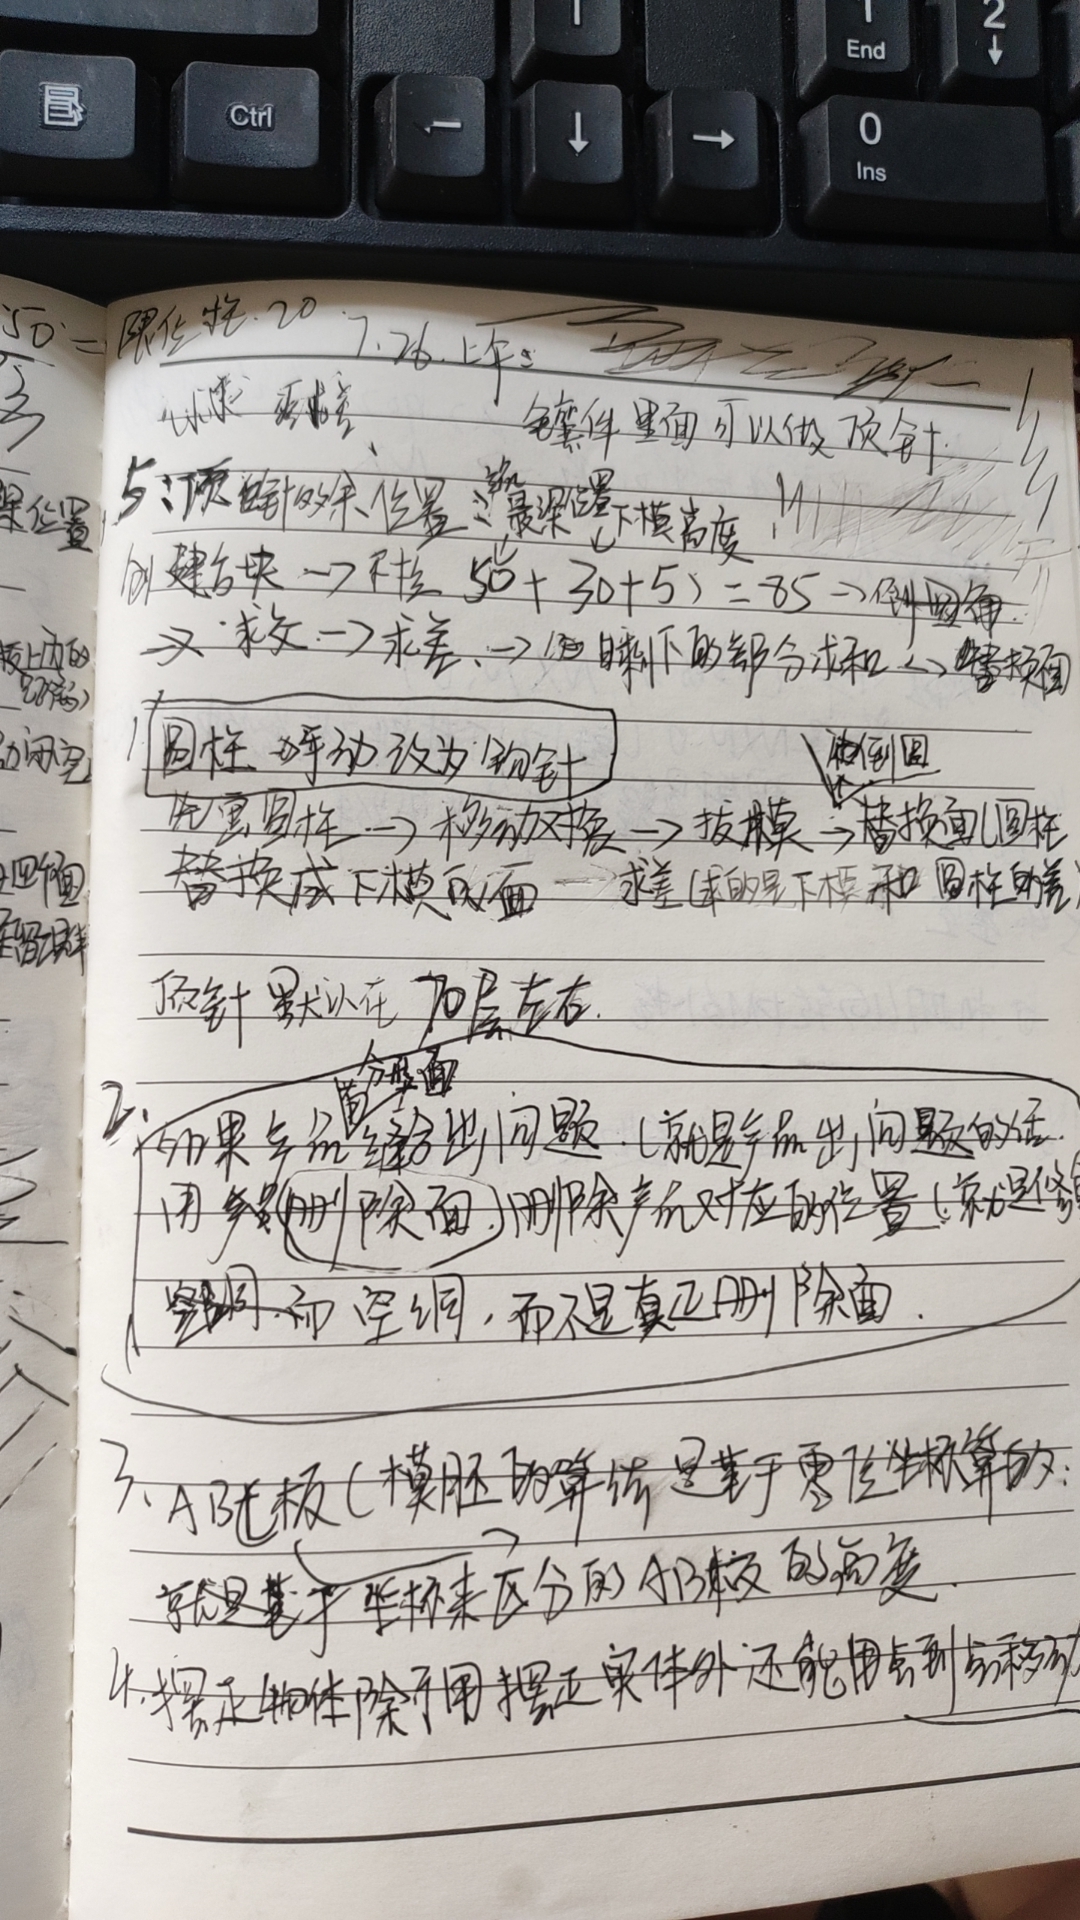 End
1
2
Ctrl
0
Ins
50 =
限位柱.20
7.26.上午:
求差
镶件里面可以做顶针.
5:顶针的余位置:
最深位置
下模高度
创建方块→下拉 50+30+5)=85→倒圆角
→求交→求差→ 剩下的部分求和→替换面
1.
圆柱 手动改为 针
倒圆
圆柱→移动对象→拔模→替换面(圆柱
替换成下模成面→求差(求的是下模和圆柱的差)
顶针默认在70层左右.
分型面
2.
如果产品缝出问题.(就是产品出问题的话
用 删除面)删除产品对应的位置(就是修
而空洞,而不是真正删除面.
3.AB板(模胚的算法是基于零位坐标算的:
就是基于坐标来区分的AB板的高度.
4.摆正物体除了用摆正实体外还能用点到点移动
位置
上面的
四个面